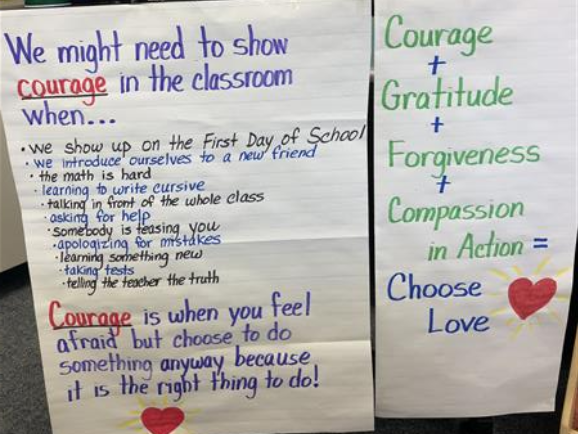 We might need to show
courage in the classroom
when...
• we show up on the First Day of School
• we introduce ourselves to a new friend
• the math is hard
• learning to write cursive
• talking in front of the whole class
• asking for help
• somebody is teasing you
• apologizing for mistakes
• learning something new
• taking tests
• telling the teacher the truth
Courage is when you feel
afraid but choose to do
something anyway because
it is the right thing to do!
Courage
+
Gratitude
+
Forgiveness
+
Compassion
in Action =
Choose
Love